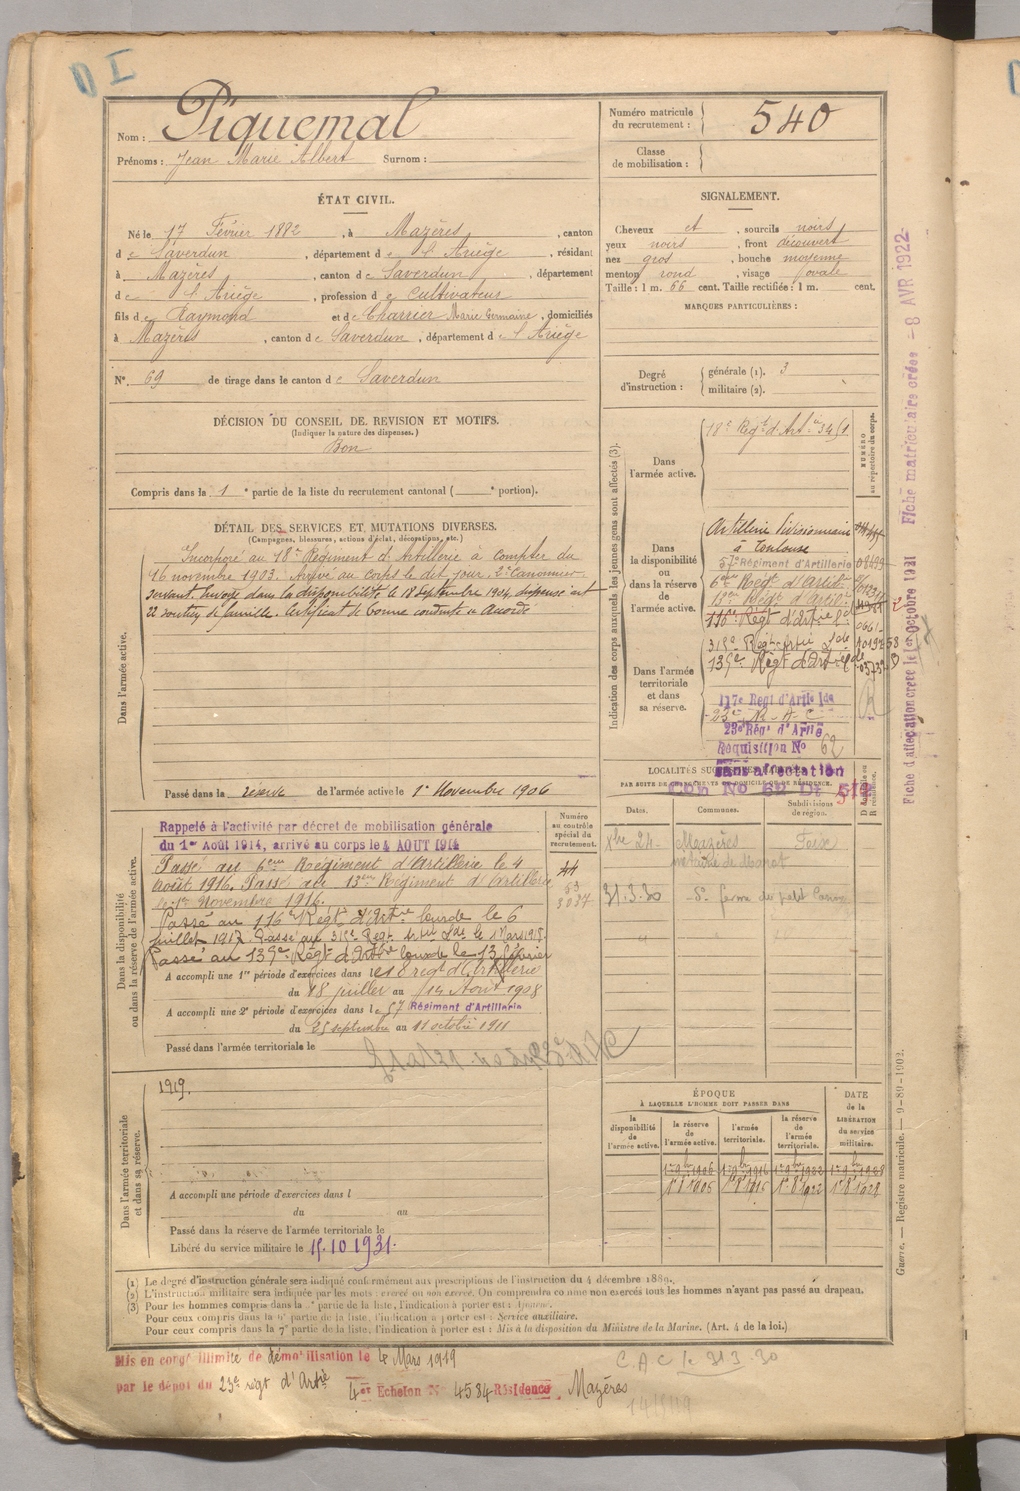 D I
Nom : Piquemal
Prénoms : Jean Marie Albert Surnom :
Numéro matricule du recrutement : 540
Classe de mobilisation :
ÉTAT CIVIL.
Né le 17 Février 1882, à Mazères, canton
de Saverdun, département de l'Ariège, résidant
à Mazères, canton de Saverdun, département
de l'Ariège, profession de Cultivateur
fils de Raymond et de Charrier Marie Germaine, domiciliés
à Mazères, canton de Saverdun, département de l'Ariège
N° 69 de tirage dans le canton de Saverdun
SIGNALEMENT.
Cheveux et, sourcils noirs
yeux noirs, front découvert
nez gros, bouche moyenne
menton rond, visage ovale
Taille : 1 m. 66 cent. Taille rectifiée : 1 m. cent.
MARQUES PARTICULIÈRES :
Degré d'instruction : générale (1). 3
militaire (2).
DÉCISION DU CONSEIL DE REVISION ET MOTIFS.
(Indiquer la nature des dispenses.)
Bon
Compris dans la 1e partie de la liste du recrutement cantonal ( e portion).
DÉTAIL DES SERVICES ET MUTATIONS DIVERSES.
(Campagnes, blessures, actions d'éclat, décorations, etc.)
Dans l'armée active.
Incorporé au 18e Régiment d'Artillerie à compter du
16 novembre 1903. Arrivé au corps le dit jour. 2e Canonnier
servant. Envoyé dans la disponibilité le 18 septembre 1904, dispensé art
22 soutien de famille. Certificat de bonne conduite accordé
Passé dans la réserve de l'armée active le 1er Novembre 1906
Indication des corps auxquels les jeunes gens sont affectés (3).
NUMÉRO au répertoire du corps.
Dans l'armée active.
18e Régt d'Art
Dans la disponibilité ou dans la réserve de l'armée active.
Artillerie Divisionnaire
à Toulouse
57e Régiment d'Artillerie
6eme Régt d'Artie
13eme Régt d'Artie
116e Régt d'Artie lde
Dans l'armée territoriale et dans sa réserve.
315e Régt Artie Lde
135e Régt d'Artie lde
117e Regt d'Artie lde
23e R. A. C
23e Rég' d'Artie
Réquisition N° 62
Sans affectation
LOCALITÉS
PAR SUITE DE DOMICILE OU DE RÉSIDENCE.
Dates. Communes. Subdivisions de région.
Xbre 24 Mazères Foix
31.3.30
Dans la disponibilité ou dans la réserve de l'armée active.
Numéro au contrôle spécial du recrutement.
Rappelé à l'activité par décret de mobilisation générale
du 1er Août 1914, arrivé au corps le 4 AOUT 1914
Passé au 6eme Régiment d'Artillerie le 4
Août 1916. Passé au 13eme Régiment d'Artillerie
le 1er Novembre 1916.
Passé au 116e Régt d'Artie lourde le 6
juillet 1917. Passé au 315e Régt Artie Lde le 1 Mars 1918.
Passé au 135e Régt d'Artie lourde le 13 février
A accompli une 1re période d'exercices dans le 18 régt d'Artillerie
du 18 juillet au 14 Août 1908
A accompli une 2e période d'exercices dans le 57 Régiment d'Artillerie
du 25 septembre au 11 octobre 1911
Passé dans l'armée territoriale le
Dans l'armée territoriale et dans sa réserve.
1919.
A accompli une période d'exercices dans l
du au
Passé dans la réserve de l'armée territoriale le
Libéré du service militaire le 15.10 1931.
ÉPOQUE À LAQUELLE L'HOMME DOIT PASSER DANS
DATE de la LIBÉRATION du service militaire.
la disponibilité de l'armée active. la réserve de l'armée active. l'armée territoriale. la réserve de l'armée territoriale.
(1) Le degré d'instruction générale sera indiqué conformément aux prescriptions de l'instruction du 4 décembre 1889.
(2) L'instruction militaire sera indiquée par les mots : exercé ou non exercé. On comprendra comme non exercés tous les hommes n'ayant pas passé au drapeau.
(3) Pour les hommes compris dans la e partie de la liste, l'indication à porter est :
Pour ceux compris dans la partie de la liste, l'indication à porter est : Service auxiliaire.
Pour ceux compris dans la 7e partie de la liste, l'indication à porter est : Mis à la disposition du Ministre de la Marine. (Art. 4 de la loi.)
Mis en congé illimité de démobilisation le 4 Mars 1919
par le dépôt du 23e régt d'Artie 4er Echelon N° 4584 Résidence Mazères
C.A.C le 31.3.30
Fiche d'affectation créée le 1er octobre 1921
Fiche matriculaire créée - 8 AVR 1922
Guerre. — Registre matricule. — 9-89-1902.